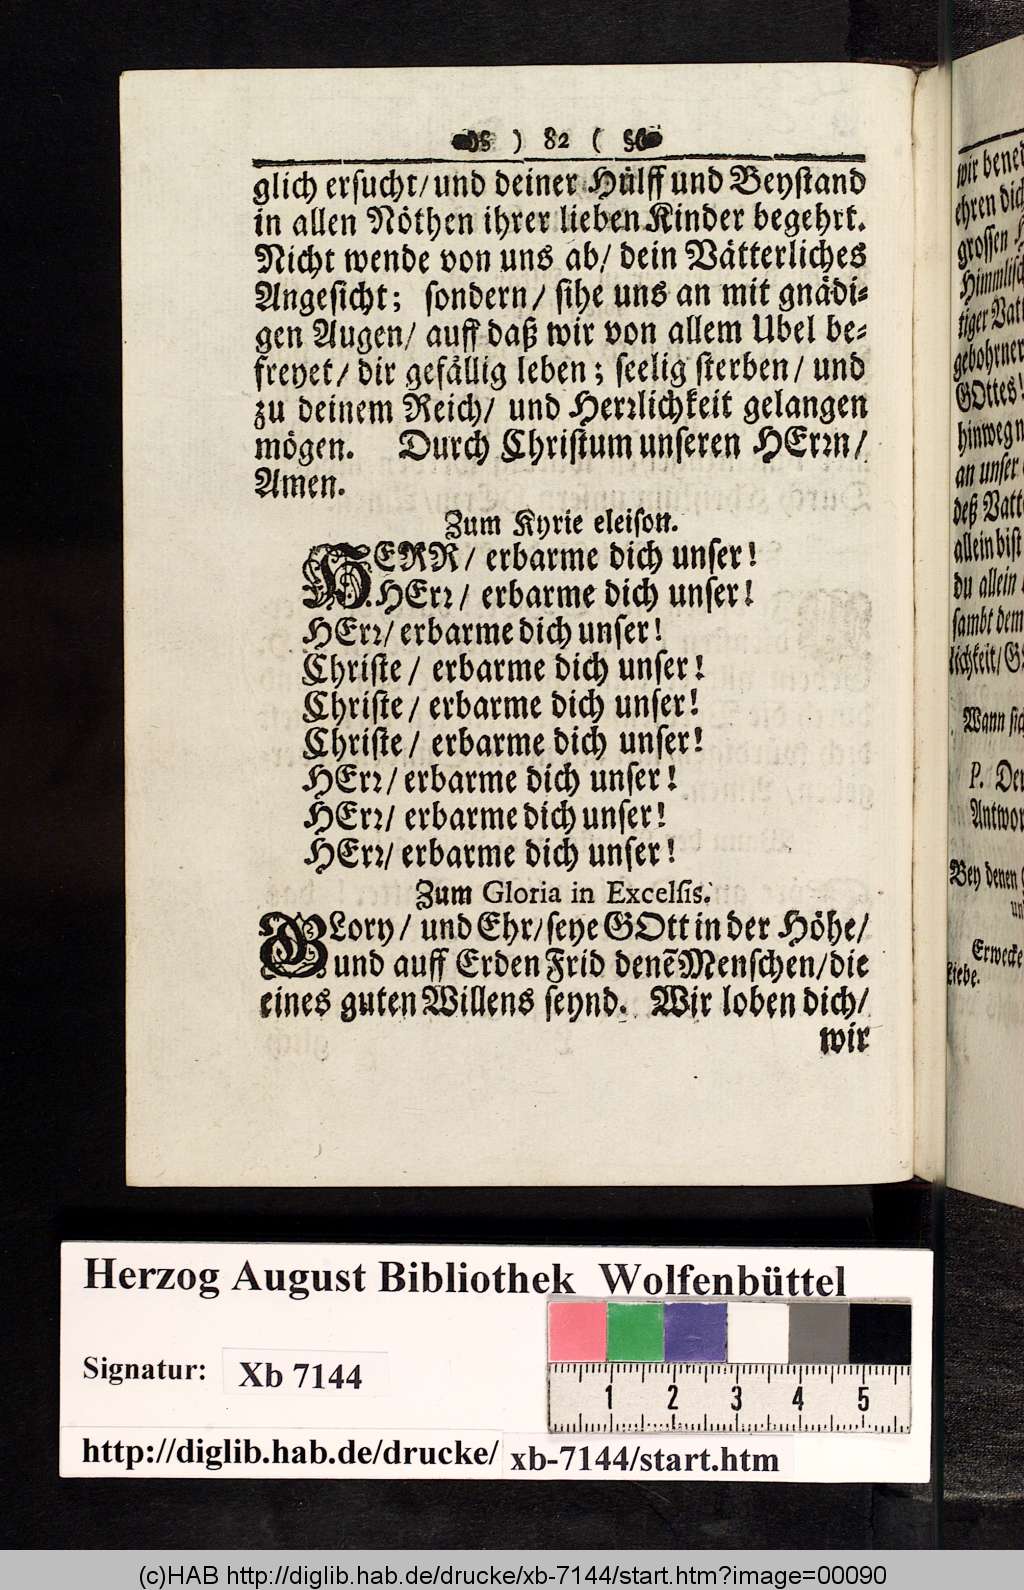 ) 82 (
glich ersucht/ und deiner Hülff und Beystand
in allen Nöthen ihrer lieben Kinder begehrt.
Nicht wende von uns ab/ dein Vätterliches
Angesicht; sondern/ sihe uns an mit gnädi-
gen Augen/ auff daß wir von allem Ubel be-
freyet/ dir gefällig leben; seelig sterben/ und
zu deinem Reich/ und Herrlichkeit gelangen
mögen. Durch Christum unseren HErrn/
Amen.
Zum Kyrie eleison.
HERR/ erbarme dich unser!
HErr/ erbarme dich unser!
HErr/ erbarme dich unser!
Christe/ erbarme dich unser!
Christe/ erbarme dich unser!
Christe/ erbarme dich unser!
HErr/ erbarme dich unser!
HErr/ erbarme dich unser!
HErr/ erbarme dich unser!
Zum Gloria in Excelsis.
GLory/ und Ehr/ seye GOtt in der Höhe/
und auff Erden Frid denẽ Menschen/ die
eines guten Willens seynd. Wir loben dich/
wir
wir
ehren
grossen
tiger
GOttes
an unser
deß
allein bist
du allein
sambt dem
lichkeit/
Wann
P.
Bey denen
liebe.
Herzog August Bibliothek Wolfenbüttel
Signatur: Xb 7144
1 2 3 4 5
http://diglib.hab.de/drucke/ xb-7144/start.htm
(c)HAB http://diglib.hab.de/drucke/xb-7144/start.htm?image=00090